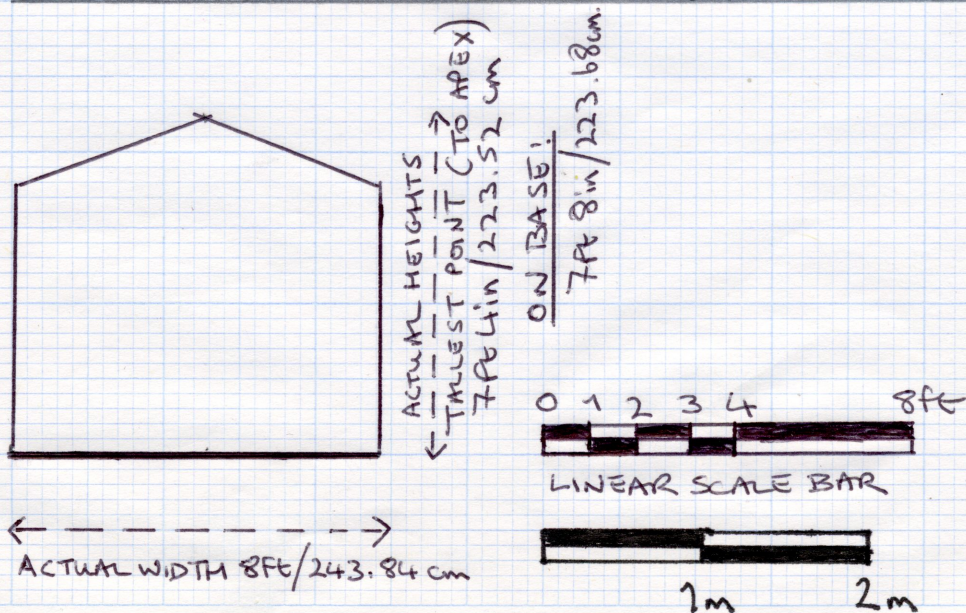 ACTUAL HEIGHTS
TALLEST POINT (TO APEX)
7ft 4in/223.52 cm
ON BASE!
7ft 8in/223.68cm.
0 1 2 3 4 8ft
LINEAR SCALE BAR
1m 2m
ACTUAL WIDTH 8ft/243.84 cm